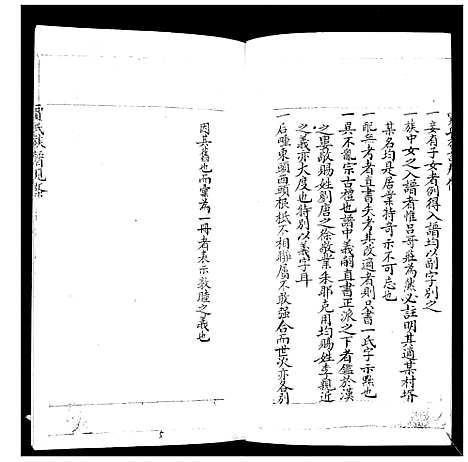 一妾有子女者例得入譜均以副字別之
一族中女之入譜者惟吕哥莊為然必註明其適某村壻
某名均是居業特奇示不可忘也
一配無考者直書失考其改適者則只書一氏字示黜也
一異不亂宗古禮也譜中義嗣直書正派之下者鑑於漢
之婁敬賜姓劉唐之徐敬業朱耶克用均賜姓李親近
之義亦大度也特別以義字耳
一后疃東頭西頭根柢不相聯屬不敢强合而世次亦各別
因其舊也而彙為一冊者表示敦睦之義也
賈氏族譜凡例
5